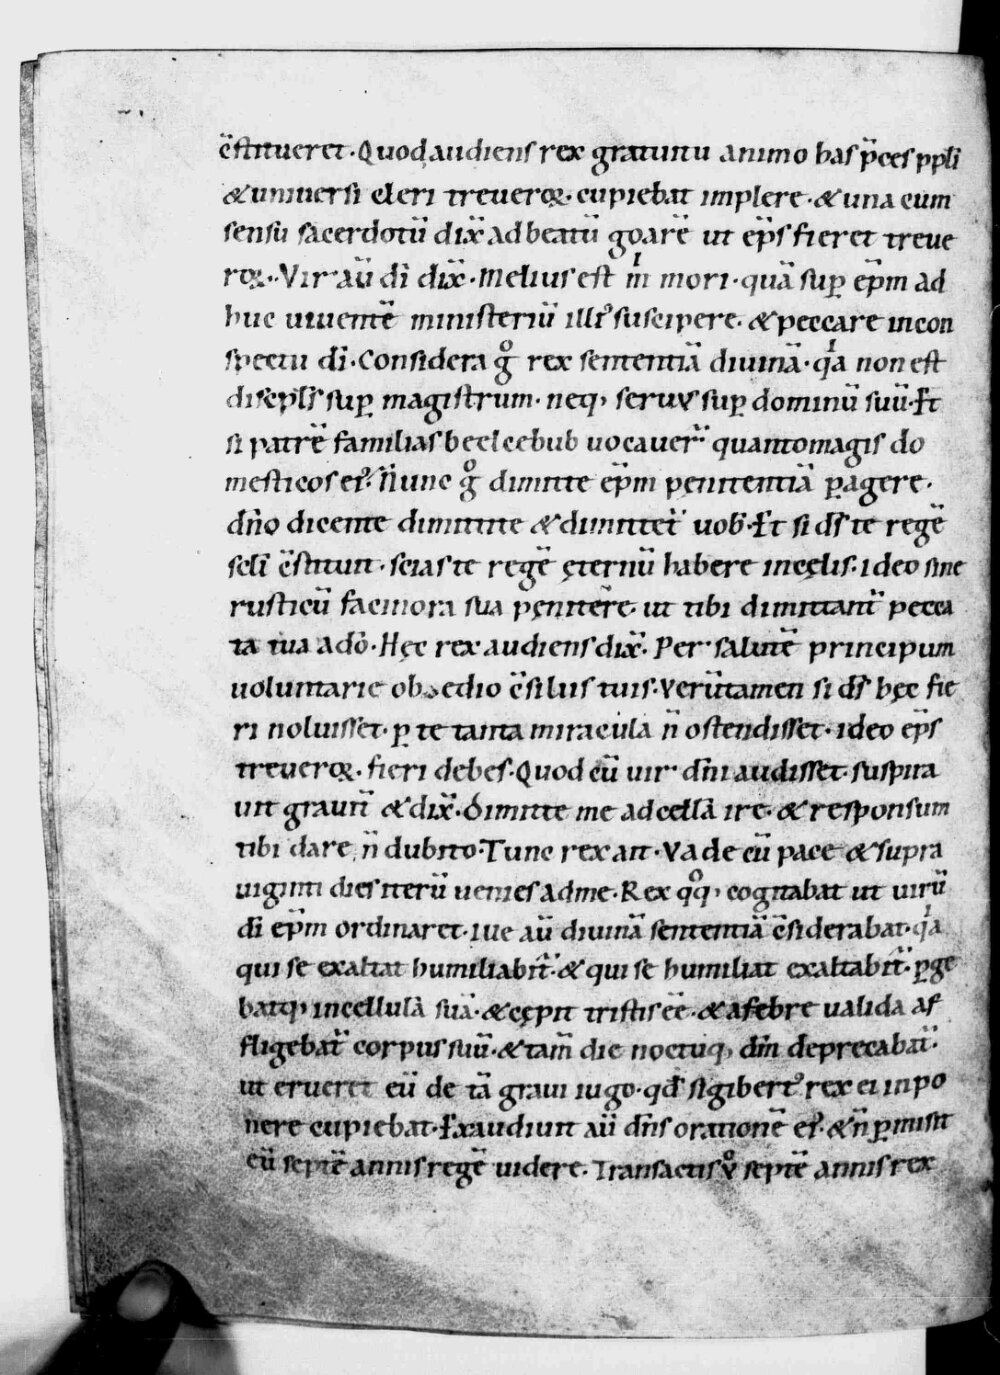 c̄stitueret. Quod audiens rex gratuitu animo has p̄ces ppl̄i
& uniuersi cleri treueroꝝ. cupiebat implere. & una cum
sensū sacerdotū dix̄ ad beatū goarē ut ep̄s fieret treue
roꝝ. Vir aū dī dix̄. Melius est m̍ mori. quā suꝑ ep̄m ad
huc uiuentē ministeriū illiꝰ suscipere. & peccare in con
spectu dī. Considera gͦ rex sententiā diuinā. qͥa non est
discipl̄s suꝑ magistrum. neq; seruus suꝑ dominū suū. Et
si patrē familias beelcebub uocauer̄ quanto magis do
mesticos eiꝰ. Nunc gͦ dimitte ep̄m penitentiā ꝑagere.
dn̄o dicente dimittite & dimittet̄ uob̄. Et si dſ̄ te regē
scl̄i c̄stituit. scias te regē ęternū habere in cęlis. ideo sine
rusticū facinora sua pęnitēre. ut tibi dimittant̄ pecca
ta tua a dō. Hęc rex audiens dix̄. Per salutē principum
uoluntarie oboedio c̄siliis tuis. Verūtamen si dſ̄ hęc fie
ri noluisset. ꝑ te tanta miracula n̄ ostendisset. ideo ep̄s
treueroꝝ. fieri debes. Quod cū uir dn̄i audisset. suspira
uit grauit̄ & dix̄. Dimitte me ad cellā ire. & responsum
tibi dare n̄ dubito. Tunc rex ait. Vade cū pace & supra
uiginti dies iterū uenies ad me. Rex qͦq; cogitabat ut uirū
dī ep̄m ordinaret. iue aū diuinā sententiā c̄siderabat. qͥa
qui se exaltat humiliabit̄. & qui se humiliat exaltabit̄. ꝑge
batq; in cellulā suā. & cępit tristis eē. & a febre ualida af
fligebat̄ corpus suū. & tam̄ die noctuq; dn̄m deprecabat̄.
ut erueret eū de tā graui iugo. qđ sigibertꝰ rex ei inpo
nere cupiebat. Exaudiuit aū dn̄s orationē eiꝰ. & n̄ ꝑmisit
eū septē annis regē uidere. Transactis uͦ septē annis rex